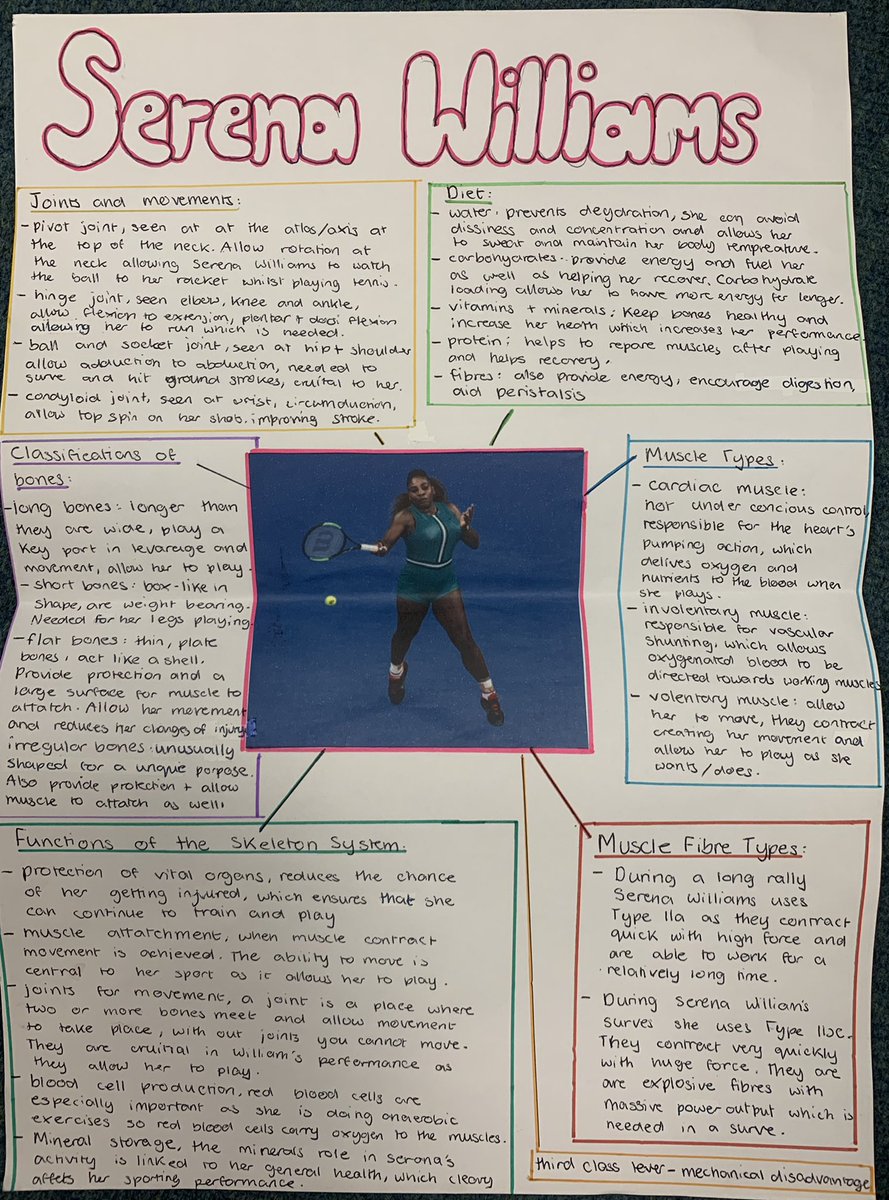 Serena Williams
Joints and movements:
- pivot joint, seen at at the atlas/axis at
the top of the neck. Allow rotation at
the neck allowing Serena Williams to watch
the ball to her racket whilst playing tennis.
- hinge joint, seen elbow, knee and ankle,
allow flexion to extension, plantar + dorsi flexion
allowing her to run which is needed.
- ball and socket joint, seen at hip + shoulder
allow adduction to abduction, needed to
surve and hit ground strokes, cruital to her.
- condyloid joint, seen at wrist, circumduction,
allow top spin on her shot. improving stroke.
Diet:
- water: prevents deydration, she can avoid
dissiness and concentration and allows her
to sweat and maintain her body tempreature.
- carbohydrates: provide energy and fuel her
as well as helping her recover. Carbohydrate
loading allows her to have more energy for longer.
- vitamins + minerals: Keep bones healthy and
increase her health which increases her performance.
- protein: helps to repare muscles after playing
and helps recovery.
- fibres: also provide energy, encourage digestion,
aid peristalsis
Classifications of
bones:
- long bones: longer than
they are wide, play a
key part in levareage and
movement, allow her to play.
- short bones: box-like in
shape, are weight bearing.
Needed for her legs playing.
- flat bones: thin, plate
bones, act like a shell.
Provide protection and a
large surface for muscle to
attatch. Allow her movement
and reduces her changes of injury
irregular bones: unusually
shaped for a unique porpose.
Also provide protection + allow
muscle to attatch as well.
W
Muscle Types:
- cardiac muscle:
not under concious control,
responsible for the heart's
pumping action, which
delives oxygen and
nutrients to the blood when
she plays.
- involentary muscle:
responsible for vascular
shunting, which allows
oxygenated blood to be
directed towards working muscles
- volentary muscle: allow
her to move, they contract
creating her movement and
allow her to play as she
wants/does.
Functions of the Skeleton System:
- protection of vital organs, reduces the chance
of her getting injured, which ensures that she
can continue to train and play
- muscle attatchment, when muscle contract
movement is achieved. The ability to move is
central to her sport as it allows her to play.
- joints for movement, a joint is a place where
two or more bones meet and allow movement
to take place, with out joints you cannot move.
They are cruitial in William's performance as
they allow her to play.
- blood cell production, red blood cells are
especially important as she is doing anaerobic
exercises so red blood cells carry oxygen to the muscles.
- Mineral storage, the minerals role in serena's
activity is linked to her general health, which cleary
affets her sporting performance.
Muscle Fibre Types:
- During a long rally
Serena Williams uses
Type IIa as they contract
quick with high force and
are able to work for a
relatively long time.
- During Serena William's
surves she uses Type IIx.
They contract very quickly
with huge force. They are
are explosive fibres with
massive power output which is
needed in a surve.
third class lever - mechanical disadvantage